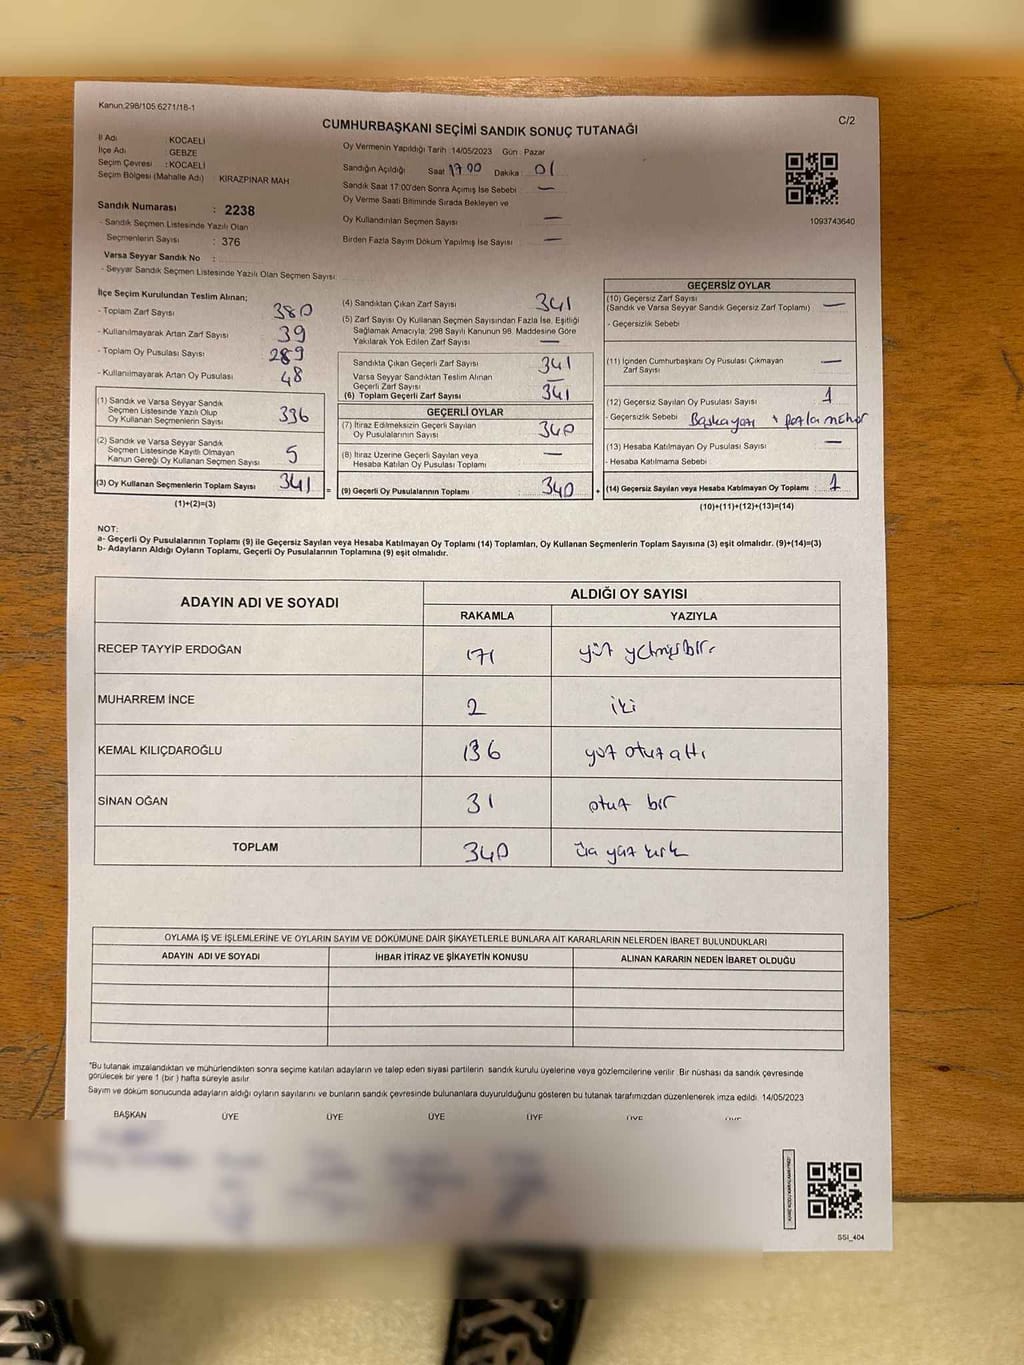 Kanun,298/105 6271/18-1
C/2
CUMHURBAŞKANI SEÇİMİ SANDIK SONUÇ TUTANAĞI
İl Adı : KOCAELİ
İlçe Adı : GEBZE
Seçim Çevresi : KOCAELİ
Seçim Bölgesi (Mahalle Adı) : KİRAZPINAR MAH
Sandık Numarası : 2238
- Sandık Seçmen Listesinde Yazılı Olan
Seçmenlerin Sayısı : 376
Varsa Seyyar Sandık No :
- Seyyar Sandık Seçmen Listesinde Yazılı Olan Seçmen Sayısı:
Oy Vermenin Yapıldığı Tarih : 14/05/2023 Gün : Pazar
Sandığın Açıldığı Saat 17 00 Dakika : 01
Sandık Saat 17:00'den Sonra Açımış İse Sebebi : —
Oy Verme Saati Bitiminde Sırada Bekleyen ve
Oy Kullandırılan Seçmen Sayısı —
Birden Fazla Sayım Döküm Yapılmış İse Sayısı —
1093743640
İlçe Seçim Kurulundan Teslim Alınan;
- Toplam Zarf Sayısı 380
- Kullanılmayarak Artan Zarf Sayısı 39
- Toplam Oy Pusulası Sayısı 289
- Kullanılmayarak Artan Oy Pusulası 48
(1) Sandık ve Varsa Seyyar Sandık
Seçmen Listesinde Yazılı Olup
Oy Kullanan Seçmenlerin Sayısı 336
(2) Sandık ve Varsa Seyyar Sandık
Seçmen Listesinde Kayıtlı Olmayan
Kanun Gereği Oy Kullanan Seçmen Sayısı 5
(3) Oy Kullanan Seçmenlerin Toplam Sayısı 341
(1)+(2)=(3)
(4) Sandıktan Çıkan Zarf Sayısı 341
(5) Zarf Sayısı Oy Kullanan Seçmen Sayısından Fazla İse, Eşitliği
Sağlamak Amacıyla, 298 Sayılı Kanunun 98. Maddesine Göre
Yakılarak Yok Edilen Zarf Sayısı —
Sandıkta Çıkan Geçerli Zarf Sayısı 341
Varsa Seyyar Sandıktan Teslim Alınan
Geçerli Zarf Sayısı —
(6) Toplam Geçerli Zarf Sayısı 341
GEÇERLİ OYLAR
(7) İtiraz Edilmeksizin Geçerli Sayılan
Oy Pusulalarının Sayısı 340
(8) İtiraz Üzerine Geçerli Sayılan veya
Hesaba Katılan Oy Pusulası Toplamı —
= (9) Geçerli Oy Pusulalarının Toplamı : 340 +
GEÇERSİZ OYLAR
(10) Geçersiz Zarf Sayısı
(Sandık ve Varsa Seyyar Sandık Geçersiz Zarf Toplamı) —
- Geçersizlik Sebebi :
(11) İçinden Cumhurbaşkanı Oy Pusulası Çıkmayan
Zarf Sayısı —
(12) Geçersiz Sayılan Oy Pusulası Sayısı 1
- Geçersizlik Sebebi : fazla mühür
(13) Hesaba Katılmayan Oy Pusulası Sayısı —
- Hesaba Katılmama Sebebi :
(14) Geçersiz Sayılan veya Hesaba Katılmayan Oy Toplamı : 1
(10)+(11)+(12)+(13)=(14)
NOT:
a- Geçerli Oy Pusulalarının Toplamı (9) ile Geçersiz Sayılan veya Hesaba Katılmayan Oy Toplamı (14) Toplamları, Oy Kullanan Seçmenlerin Toplam Sayısına (3) eşit olmalıdır. (9)+(14)=(3)
b- Adayların Aldığı Oyların Toplamı, Geçerli Oy Pusulalarının Toplamına (9) eşit olmalıdır.
ADAYIN ADI VE SOYADI
ALDIĞI OY SAYISI
RAKAMLA YAZIYLA
RECEP TAYYİP ERDOĞAN 171 yüz yetmişbir
MUHARREM İNCE 2 iki
KEMAL KILIÇDAROĞLU 136 yüz otuz altı
SİNAN OĞAN 31 otuz bir
TOPLAM 340 üç yüz kırk
OYLAMA İŞ VE İŞLEMLERİNE VE OYLARIN SAYIM VE DÖKÜMÜNE DAİR ŞİKAYETLERLE BUNLARA AİT KARARLARIN NELERDEN İBARET BULUNDUKLARI
ADAYIN ADI VE SOYADI İHBAR İTİRAZ VE ŞİKAYETİN KONUSU ALINAN KARARIN NEDEN İBARET OLDUĞU
*Bu tutanak imzalandıktan ve mühürlendikten sonra seçime katılan adayların ve talep eden siyasi partilerin sandık kurulu üyelerine veya gözlemcilerine verilir. Bir nüshası da sandık çevresinde
görülecek bir yere 1 (bir) hafta süreyle asılır.
Sayım ve döküm sonucunda adayların aldığı oyların sayılarını ve bunların sandık çevresinde bulunanlara duyurulduğunu gösteren bu tutanak tarafımızdan düzenlenerek imza edildi. 14/05/2023
BAŞKAN ÜYE ÜYE ÜYE ÜYE ÜYE ÜYE
SSI_404